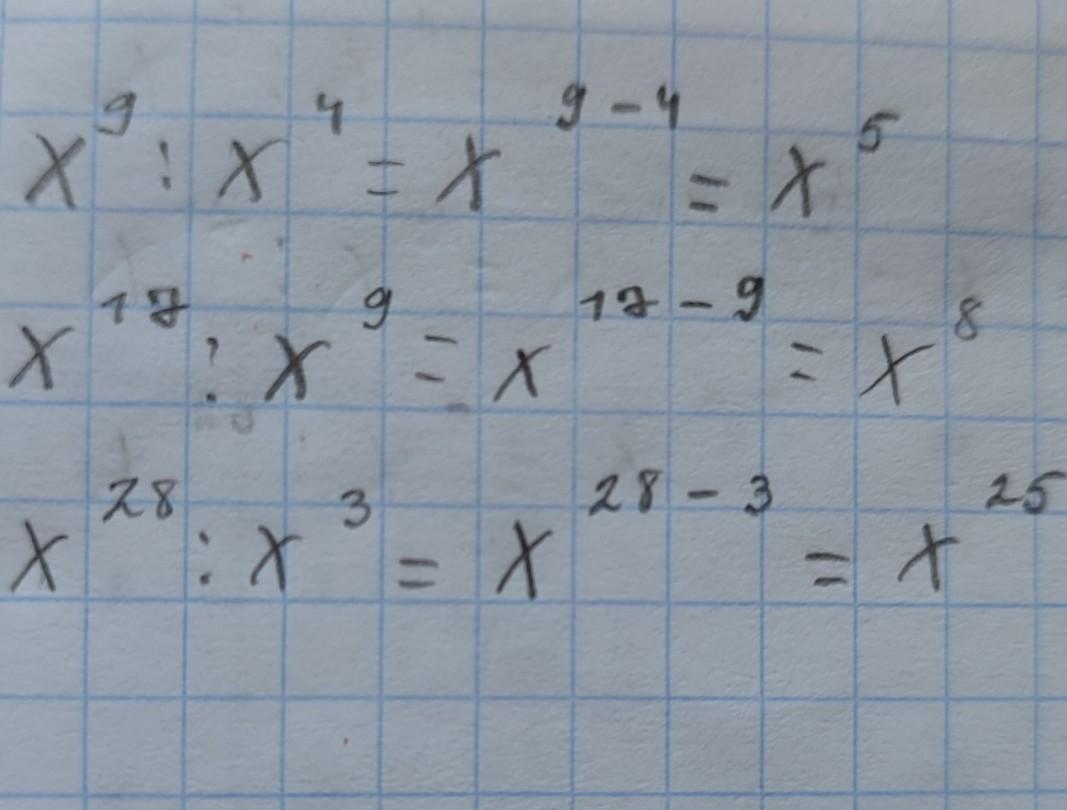 x⁹ : x⁴ = x⁹⁻⁴ = x⁵
x¹⁷ : x⁹ = x¹⁷⁻⁹ = x⁸
x²⁸ : x³ = x²⁸⁻³ = x²⁵